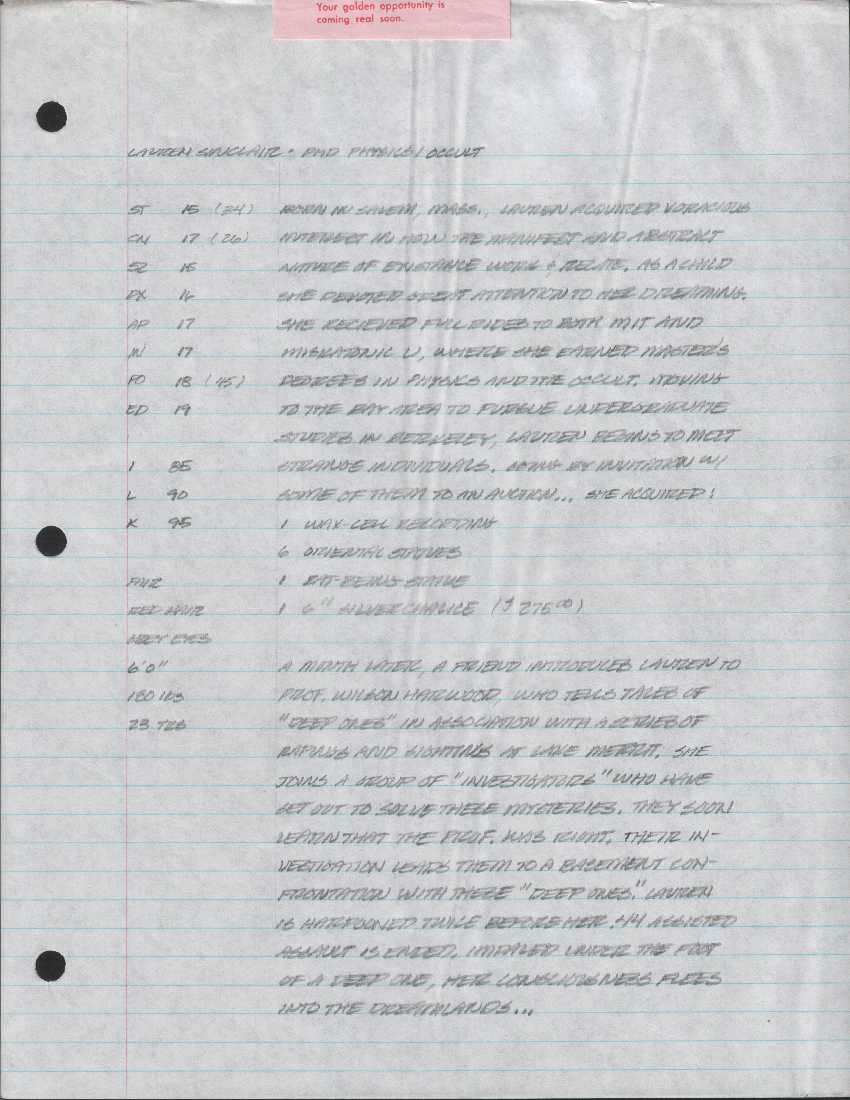 Your golden opportunity is
coming real soon.
LAUREN SINCLAIR - PHD PHYSICS / OCCULT
ST 15 (24) BORN IN SALEM, MASS., LAUREN ACQUIRED VORACIOUS
CN 17 (26) INTEREST IN HOW THE MANIFEST AND ABSTRACT
SZ 15 NATURE OF EXISTANCE WORK & RELATE. AS A CHILD
DX 16 SHE DEVOTED GREAT ATTENTION TO HER DREAMING.
AP 17 SHE RECIEVED FULL RIDES TO BOTH MIT AND
IN 17 MISKATONIC U, WHERE SHE EARNED MASTER'S
PO 18 (45) DEGREES IN PHYSICS AND THE OCCULT. MOVING
ED 19 TO THE BAY AREA TO PURSUE UNDERGRADUATE
STUDIES IN BERKELEY, LAUREN BEGINS TO MEET
I 85 STRANGE INDIVIDUALS. GOING BY INVITATION W/
L 90 SOME OF THEM TO AN AUCTION... SHE ACQUIRED:
K 95 1 WAX-CELL RECORDING
6 ORIENTAL STATUES
FAIR 1 BAT-BEING STATUE
RED HAIR 1 6" SILVER CHALICE ($275.00)
GREY EYES
6'0" A MONTH LATER, A FRIEND INTRODUCES LAUREN TO
180 lbs PROF. WILSON HARWOOD, WHO TELLS TALES OF
23 YRS "DEEP ONES" IN ASSOCIATION WITH A SERIES OF
RAPINGS AND SIGHTINGS AT LAKE MERRIT. SHE
JOINS A GROUP OF "INVESTIGATORS" WHO HAVE
SET OUT TO SOLVE THESE MYSTERIES. THEY SOON
LEARN THAT THE PROF. WAS RIGHT. THEIR IN-
VESTIGATION LEADS THEM TO A BASEMENT CON-
FRONTATION WITH THESE "DEEP ONES." LAUREN
IS HARPOONED TWICE BEFORE HER .44 ASSISTED
ASSAULT IS ENDED. IMPALED UNDER THE FOOT
OF A DEEP ONE, HER CONSCIOUSNESS FLEES
INTO THE DREAMLANDS...